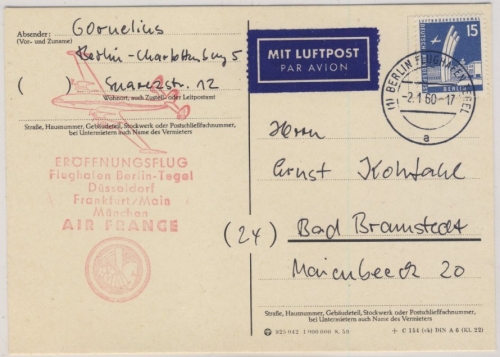 Absender:
(Vor- und Zuname)
Cornelius
Berlin-Charlottenburg 5
( ) Suarezstr. 12
Wohnort, auch Zustell- oder Leitpostamt
Straße, Hausnummer, Gebäudeteil, Stockwerk oder Postschließfachnummer,
bei Untermietern auch Name des Vermieters
ERÖFFNUNGSFLUG
Flughafen Berlin-Tegel
Düsseldorf
Frankfurt/Main
München
AIR FRANCE
MIT LUFTPOST
PAR AVION
15
DEUTSCHE
BERLIN
(1) BERLIN FLUGHAFEN TEGEL
-2.1.60-17
a
Herrn
Ernst Kohfahl
(24) Bad Bramstedt
Maienbeeck 20
Straße, Hausnummer, Gebäudeteil, Stockwerk oder Postschließfachnummer,
bei Untermietern auch Name des Vermieters
025 042 1 000 000 8. 59
+ C 154 (vk) DIN A 6 (Kl. 22)